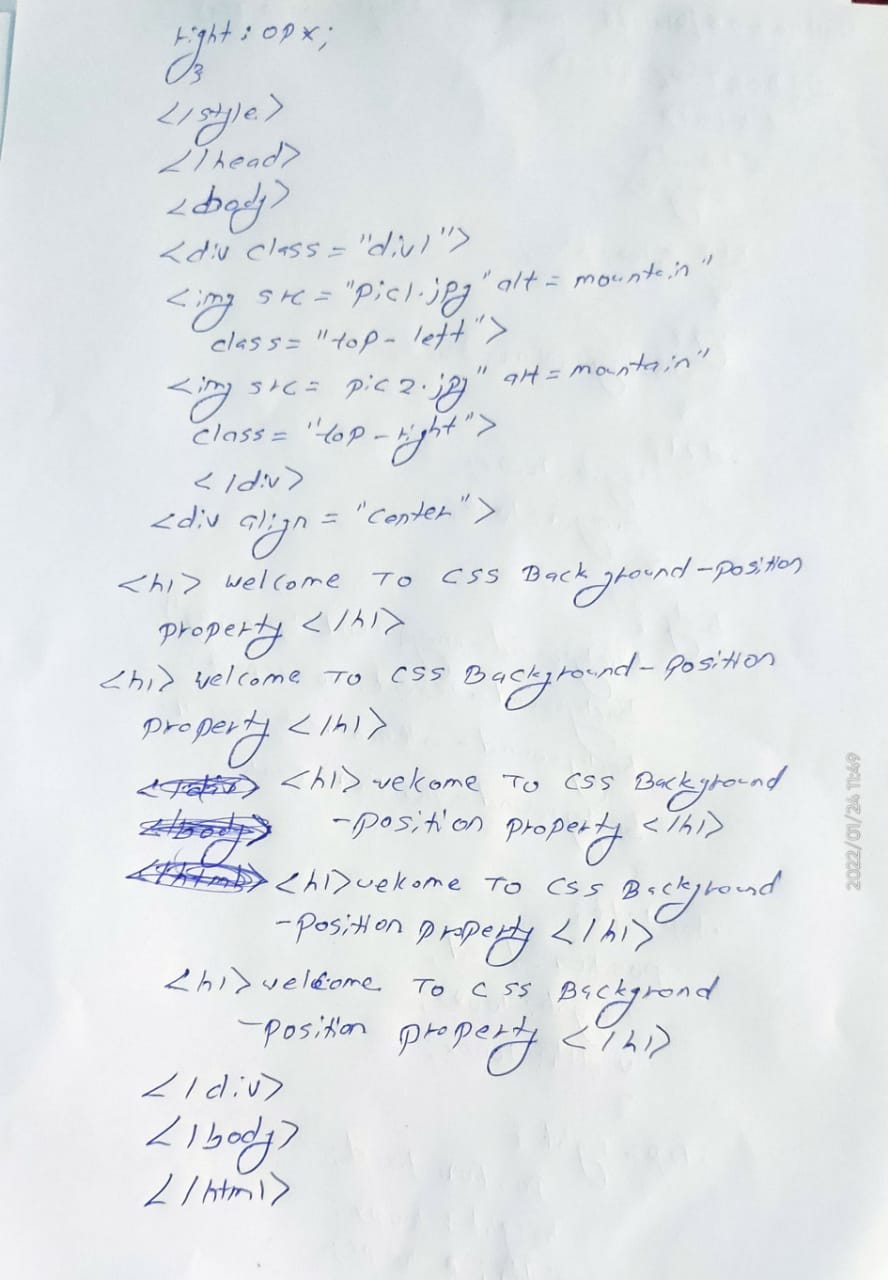 right: 0px;
}
</style>
</head>
<body>
<div class = "div1">
<img src = "pic1.jpg" alt = mountain"
class = "top-left">
<img src = pic2.jpg" alt = mountain"
class = "top-right">
</div>
<div align = "center">
<h1> welcome TO CSS Background-position
property </h1>
<h1> welcome TO CSS Background-position
property </h1>
<h1> welcome TO CSS Background
-position property </h1>
<h1> welcome TO CSS Background
-position property </h1>
<h1> welcome TO CSS Backgrond
-position property </h1>
</div>
</body>
</html>
2022/01/24 11:49